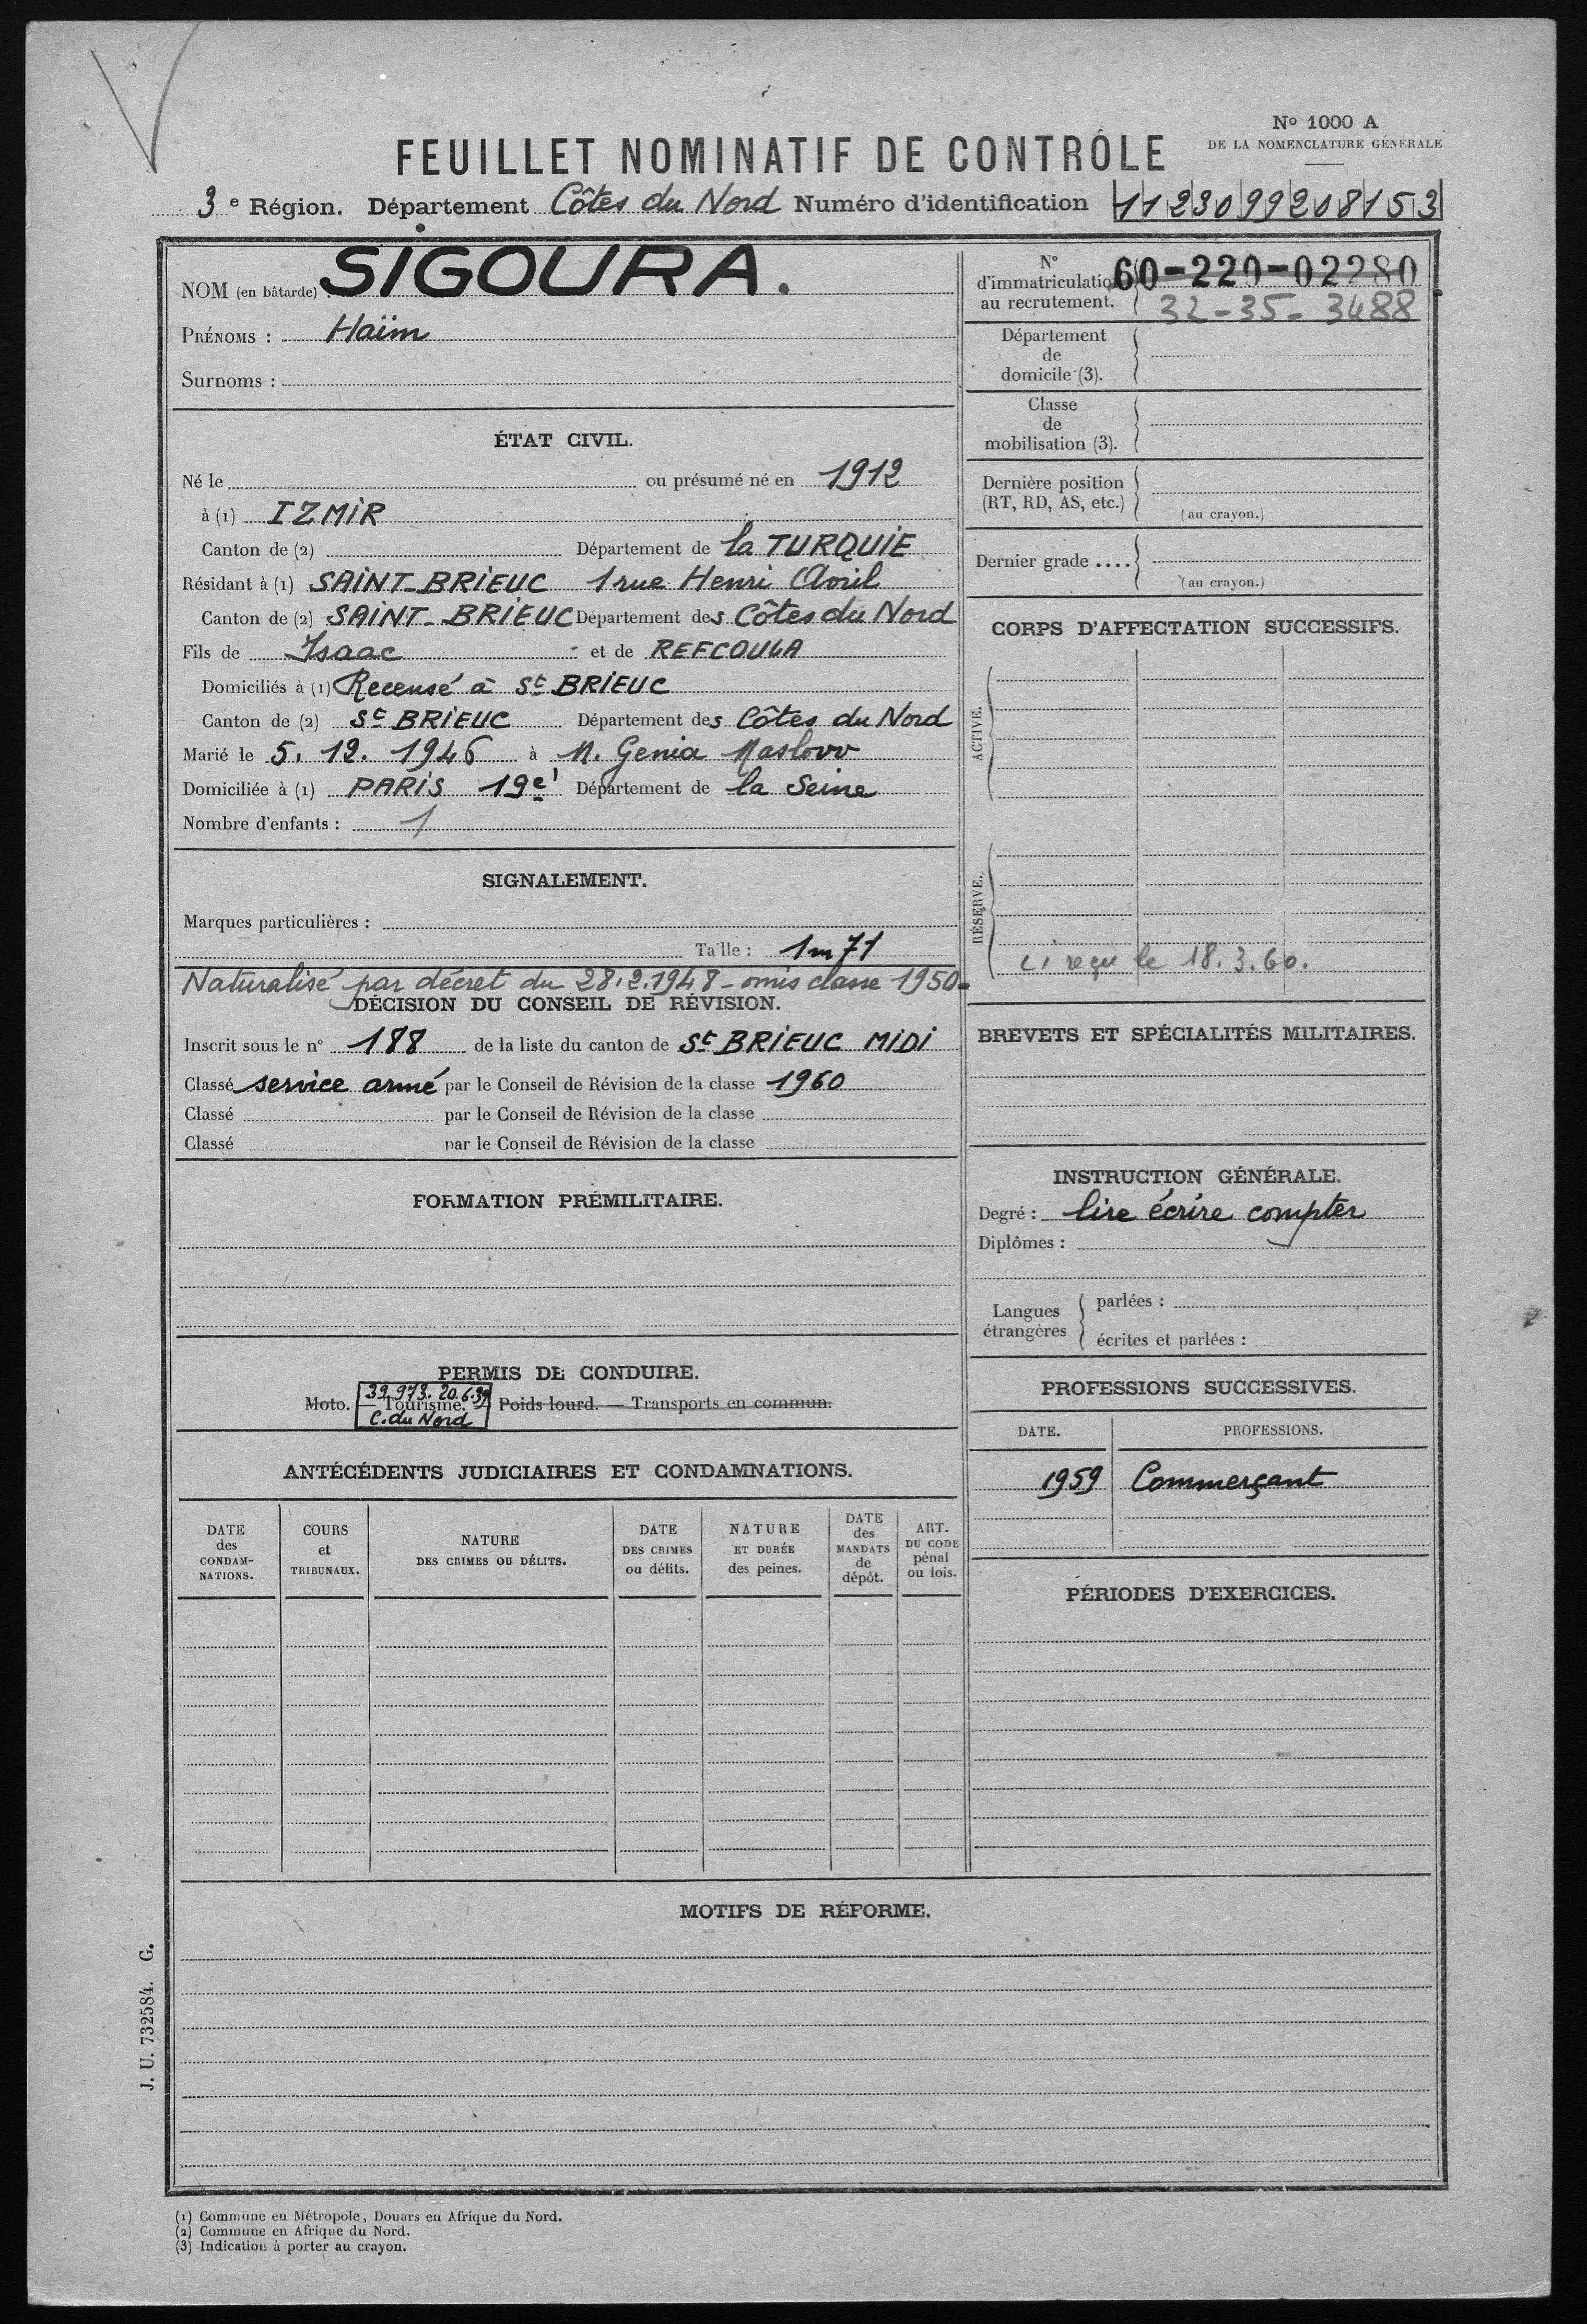 N° 1000 A
DE LA NOMENCLATURE GÉNÉRALE
FEUILLET NOMINATIF DE CONTRÔLE
3e Région. Département Côtes du Nord Numéro d'identification 1123099208153
NOM (en bâtarde) SIGOURA.
PRÉNOMS : Haïm
Surnoms :
ÉTAT CIVIL.
Né le ou présumé né en 1912
à (1) IZMIR
Canton de (2) Département de la TURQUIE
Résidant à (1) SAINT-BRIEUC 1 rue Henri Avril
Canton de (2) SAINT-BRIEUC Département des Côtes du Nord
Fils de Isaac et de
Domiciliés à (1) Recensé à St BRIEUC
Canton de (2) St BRIEUC Département des Côtes du Nord
Marié le 5. 12. 1946 à M. Genia Maslovv
Domiciliée à (1) PARIS 19e Département de la Seine
Nombre d'enfants : 1
SIGNALEMENT.
Marques particulières :
Taille : 1m71
Naturalisé par décret du 28.2.1948 - omis classe 1950-
DÉCISION DU CONSEIL DE RÉVISION.
Inscrit sous le n° 188 de la liste du canton de St BRIEUC MIDI
Classé service armé par le Conseil de Révision de la classe 1960
Classé par le Conseil de Révision de la classe
Classé par le Conseil de Révision de la classe
FORMATION PRÉMILITAIRE.
PERMIS DE CONDUIRE.
39.973. 20.6.39
Moto. — Tourisme. — Poids lourd. — Transports en commun.
C. du Nord
ANTÉCÉDENTS JUDICIAIRES ET CONDAMNATIONS.
DATE des CONDAMNATIONS.
COURS et TRIBUNAUX.
NATURE DES CRIMES OU DÉLITS.
DATE DES CRIMES ou délits.
NATURE ET DURÉE des peines.
DATE des MANDATS de dépôt.
ART. DU CODE pénal ou lois.
N° d'immatriculation au recrutement. 60-220-02280
32-35-3488
Département de domicile (3).
Classe de mobilisation (3).
Dernière position (RT, RD, AS, etc.)
(au crayon.)
Dernier grade ....
(au crayon.)
CORPS D'AFFECTATION SUCCESSIFS.
ACTIVE.
RÉSERVE.
reçu le 18.3.60.
BREVETS ET SPÉCIALITÉS MILITAIRES.
INSTRUCTION GÉNÉRALE.
Degré : lire écrire compter
Diplômes :
Langues étrangères
parlées :
écrites et parlées :
PROFESSIONS SUCCESSIVES.
DATE. PROFESSIONS.
1959 Commerçant
PÉRIODES D'EXERCICES.
MOTIFS DE RÉFORME.
J. U. 732584. G.
(1) Commune en Métropole, Douars en Afrique du Nord.
(2) Commune en Afrique du Nord.
(3) Indication à porter au crayon.